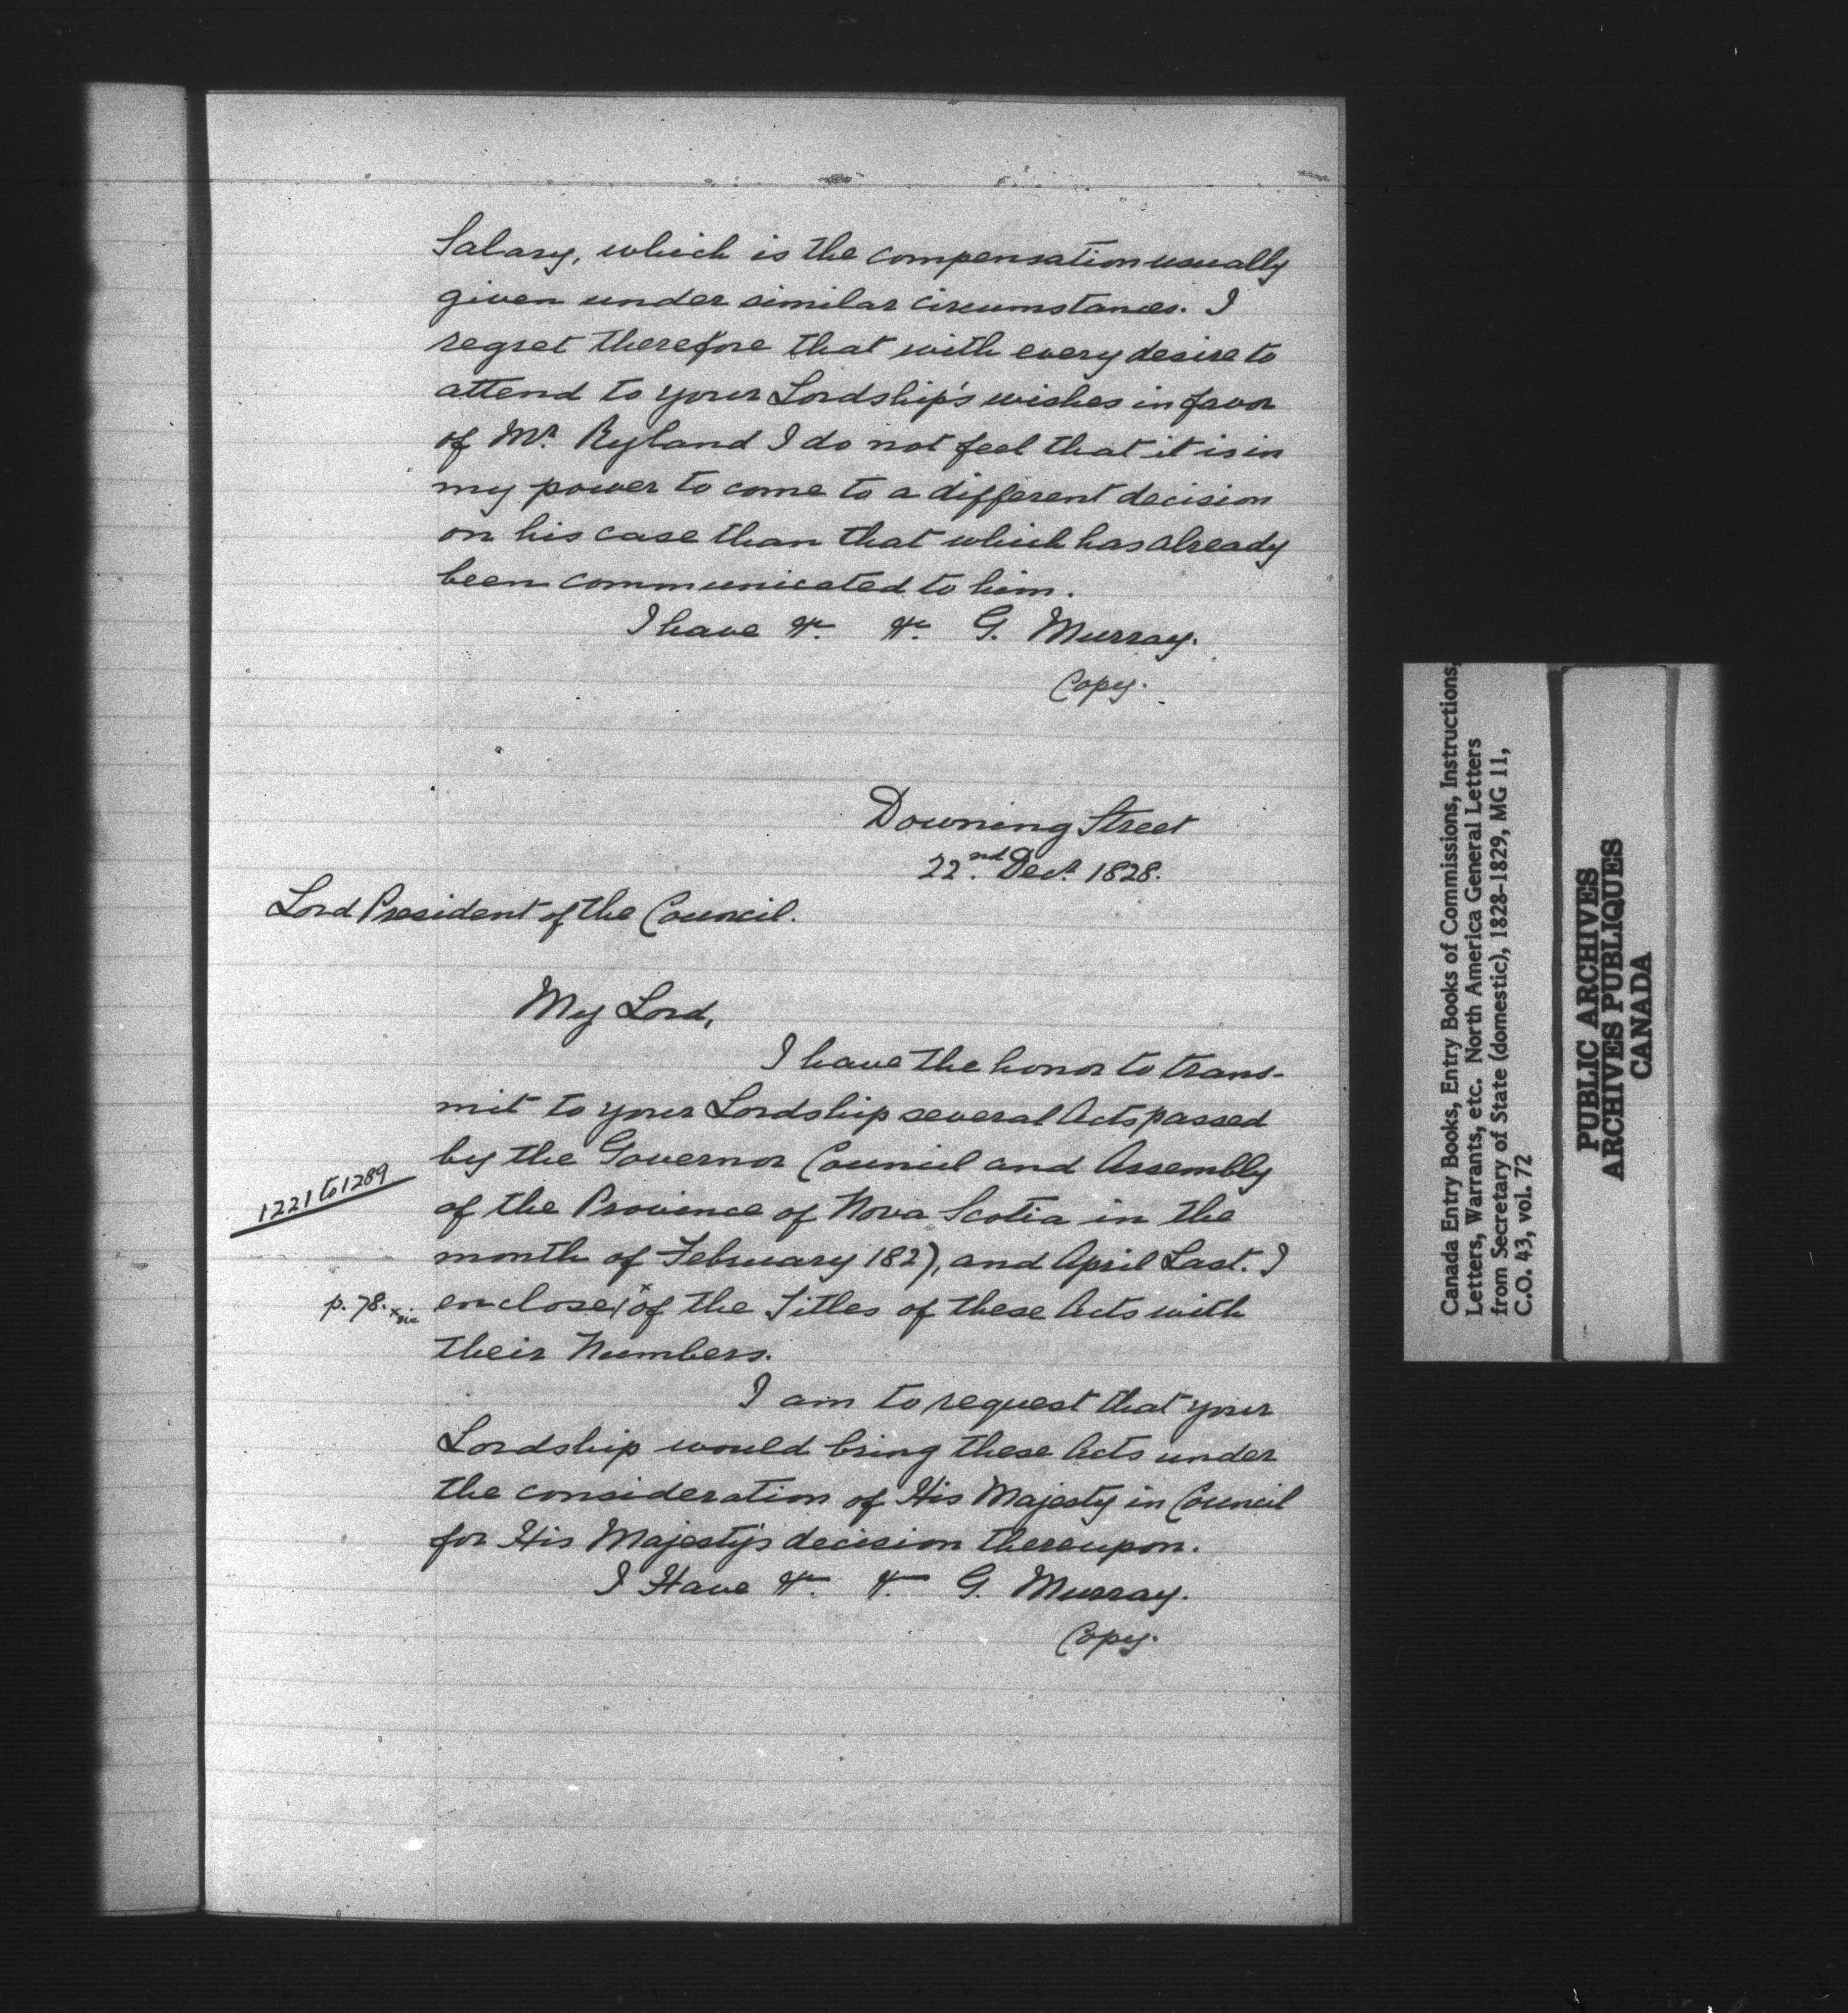 Salary, which is the compensation usually
given under similar circumstances. I
regret therefore that with every desire to
attend to your Lordship's wishes in favor
of Mr. Ryland I do not feel that it is in
my power to come to a different decision
on his case than that which has already
been communicated to him.
I have &c. &c. G. Murray.
Copy.
Downing Street
22nd. Decr. 1828.
Lord President of the Council.
My Lord,
I have the honor to trans-
mit to your Lordship several Acts passed
by the Governor Council and Assembly
1221 to 1289
of the Province of Nova Scotia in the
month of February 1827, and April Last. I
p. 78. x sic
enclose x of the Titles of these Acts with
their Numbers.
I am to request that your
Lordship would bring these Acts under
the consideration of His Majesty in Council
for His Majesty's decision thereupon.
I Have &c. &c. G. Murray.
Copy.
Canada Entry Books, Entry Books of Commissions, Instructions,
Letters, Warrants, etc. North America General Letters
from Secretary of State (domestic), 1828-1829, MG 11,
C.O. 43, vol. 72
PUBLIC ARCHIVES
ARCHIVES PUBLIQUES
CANADA